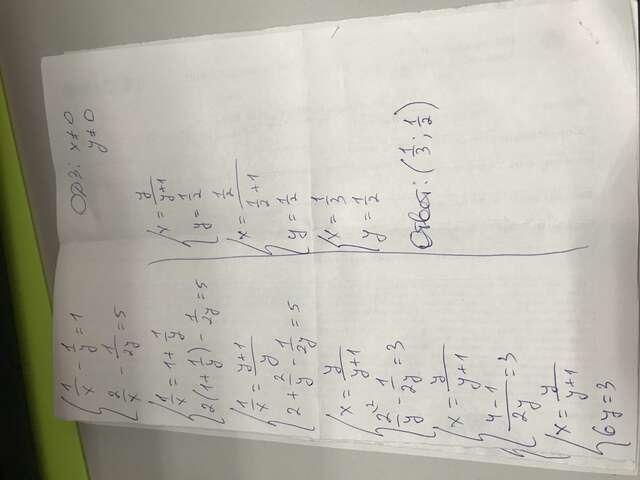 { 1/x - 1/y = 1
{ 2/x - 1/2y = 5
{ 1/x = 1 + 1/y
{ 2(1 + 1/y) - 1/2y = 5
{ 1/x = y+1/y
{ 2 + 2/y - 1/2y = 5
{ x = y/y+1
{ 2/y - 1/2y = 3
{ x = y/y+1
{ 4-1/2y = 3
{ x = y/y+1
{ 6y = 3
ОДЗ: x ≠ 0
y ≠ 0
{ x = y/y+1
{ y = 1/2
{ x = 1/2 / 1/2 + 1
{ y = 1/2
{ x = 1/3
{ y = 1/2
Ответ: (1/3; 1/2)